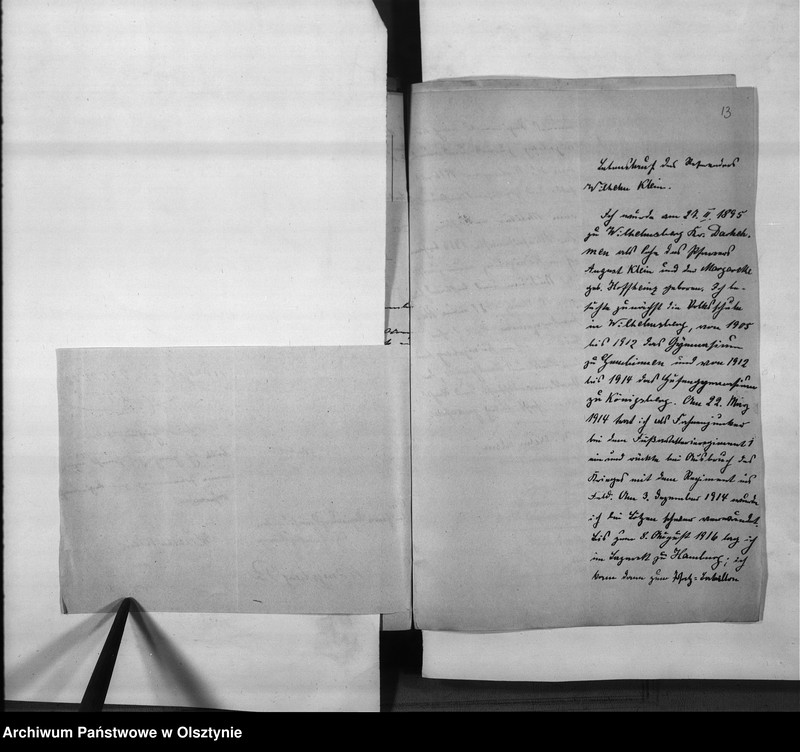 13
Lebenslauf des Referendars
Wilhelm Klein.
Ich wurde am 21. II. 1895
zu Wilhelmsberg Kr. Darkeh-
men als Sohn des Pfarrers
August Klein und der Margarete
geb. Hoffheinz geboren. Ich be-
suchte zunächst die Volksschule
in Wilhelmsberg, von 1905
bis 1912 das Gymnasium
zu Gumbinnen und von 1912
bis 1914 das Hufengymnasium
zu Königsberg. Am 22. März
1914 trat ich als Fahnenjunker
bei dem Fußartillerieregiment 1
ein und rückte bei Ausbruch des
Krieges mit dem Regiment ins
Feld. Am 3. Dezember 1914 wurde
ich bei Lötzen schwer verwundet.
Bis zum 8. August 1916 lag ich
im Lazarett zu Hamburg; ich
kam dann zum Ersatz-Bataillon
Archiwum Państwowe w Olsztynie